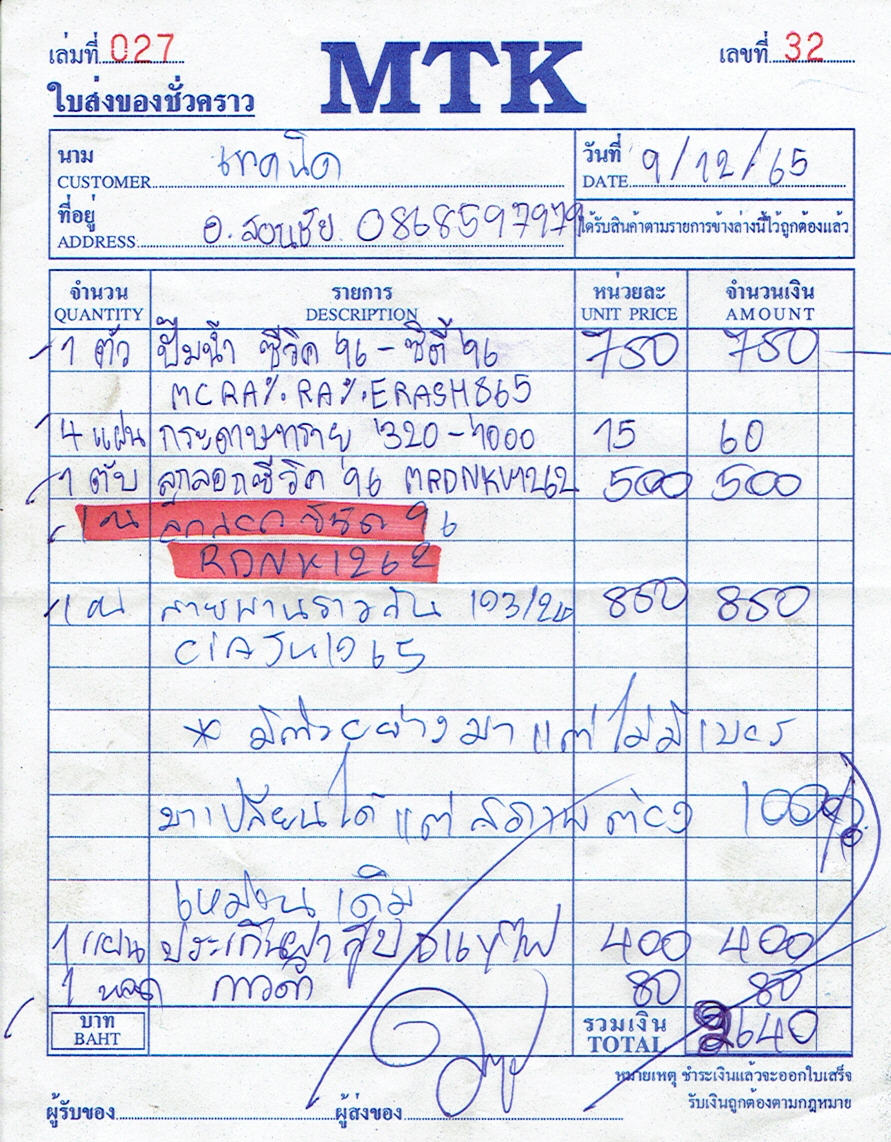 เล่มที่ 027
MTK
เลขที่ 32
ใบส่งของชั่วคราว
นาม
CUSTOMER
เทคนิค
วันที่
DATE
9/12/65
ที่อยู่
ADDRESS
อ. สอนชัย 0868597979
ได้รับสินค้าตามรายการข้างล่างนี้ไว้ถูกต้องแล้ว
จำนวน รายการ หน่วยละ จำนวนเงิน
QUANTITY DESCRIPTION UNIT PRICE AMOUNT
1 ตัว ปั๊มน้ำ ซีวิค '96 - ซิตี้ '96 750 750
MCRA%.RA%.ERASH865
4 แผ่น กระดาษทราย '320-1000 15 60
1 ตับ ลูกลอกซีวิค '96 500 500
96
RDNK1262
สายพานราวลิ้น 103/24 850 850
* มีตัวอย่างมา แต่ไม่มีเบอร์
มาเปลี่ยนได้ แต่สภาพต้อง 100%
เหมือนเดิม
1 แผ่น ประเก็นฝาสูบ 400 400
1 หลอด กาวดำ 80 80
บาท
BAHT
รวมเงิน
TOTAL
2640
หมายเหตุ ชำระเงินแล้วจะออกใบเสร็จ
รับเงินถูกต้องตามกฎหมาย
ผู้รับของ ผู้ส่งของ